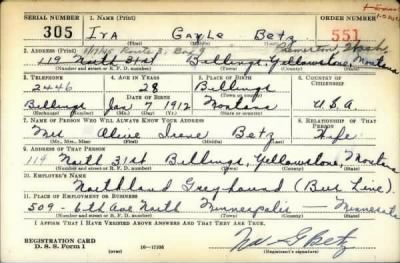 SERIAL NUMBER 1. NAME (Print) ORDER NUMBER
305 Ira Gayle Betz 551
(First) (Middle) (Last)
2. ADDRESS (Print)
119 North 31st Billings, Yellowstone, Montana
(Number and street or R. F. D. number) (Town) (County) (State)
3. TELEPHONE 4. AGE IN YEARS 5. PLACE OF BIRTH 6. COUNTRY OF CITIZENSHIP
2446 28 Billings
DATE OF BIRTH
Billings Jan 7 1912 Montana U.S.A.
(Exchange) (Mo.) (Day) (Yr.) (State or country)
7. NAME OF PERSON WHO WILL ALWAYS KNOW YOUR ADDRESS 8. RELATIONSHIP OF THAT PERSON
Mrs Alice Irene Betz Wife
(Mr., Mrs., Miss) (First) (Middle) (Last)
9. ADDRESS OF THAT PERSON
119 North 31st Billings, Yellowstone, Montana
(Number and street or R. F. D. number) (Town) (County) (State)
10. EMPLOYER'S NAME
Northland Greyhound (Bus Line).
11. PLACE OF EMPLOYMENT OR BUSINESS
509 - 6th Ave North Minneapolis - Minnesota
(Number and street or R. F. D. number) (Town) (County) (State)
I AFFIRM THAT I HAVE VERIFIED ABOVE ANSWERS AND THAT THEY ARE TRUE.
REGISTRATION CARD
D. S. S. Form 1 (over) 16-17105 (Registrant's signature)